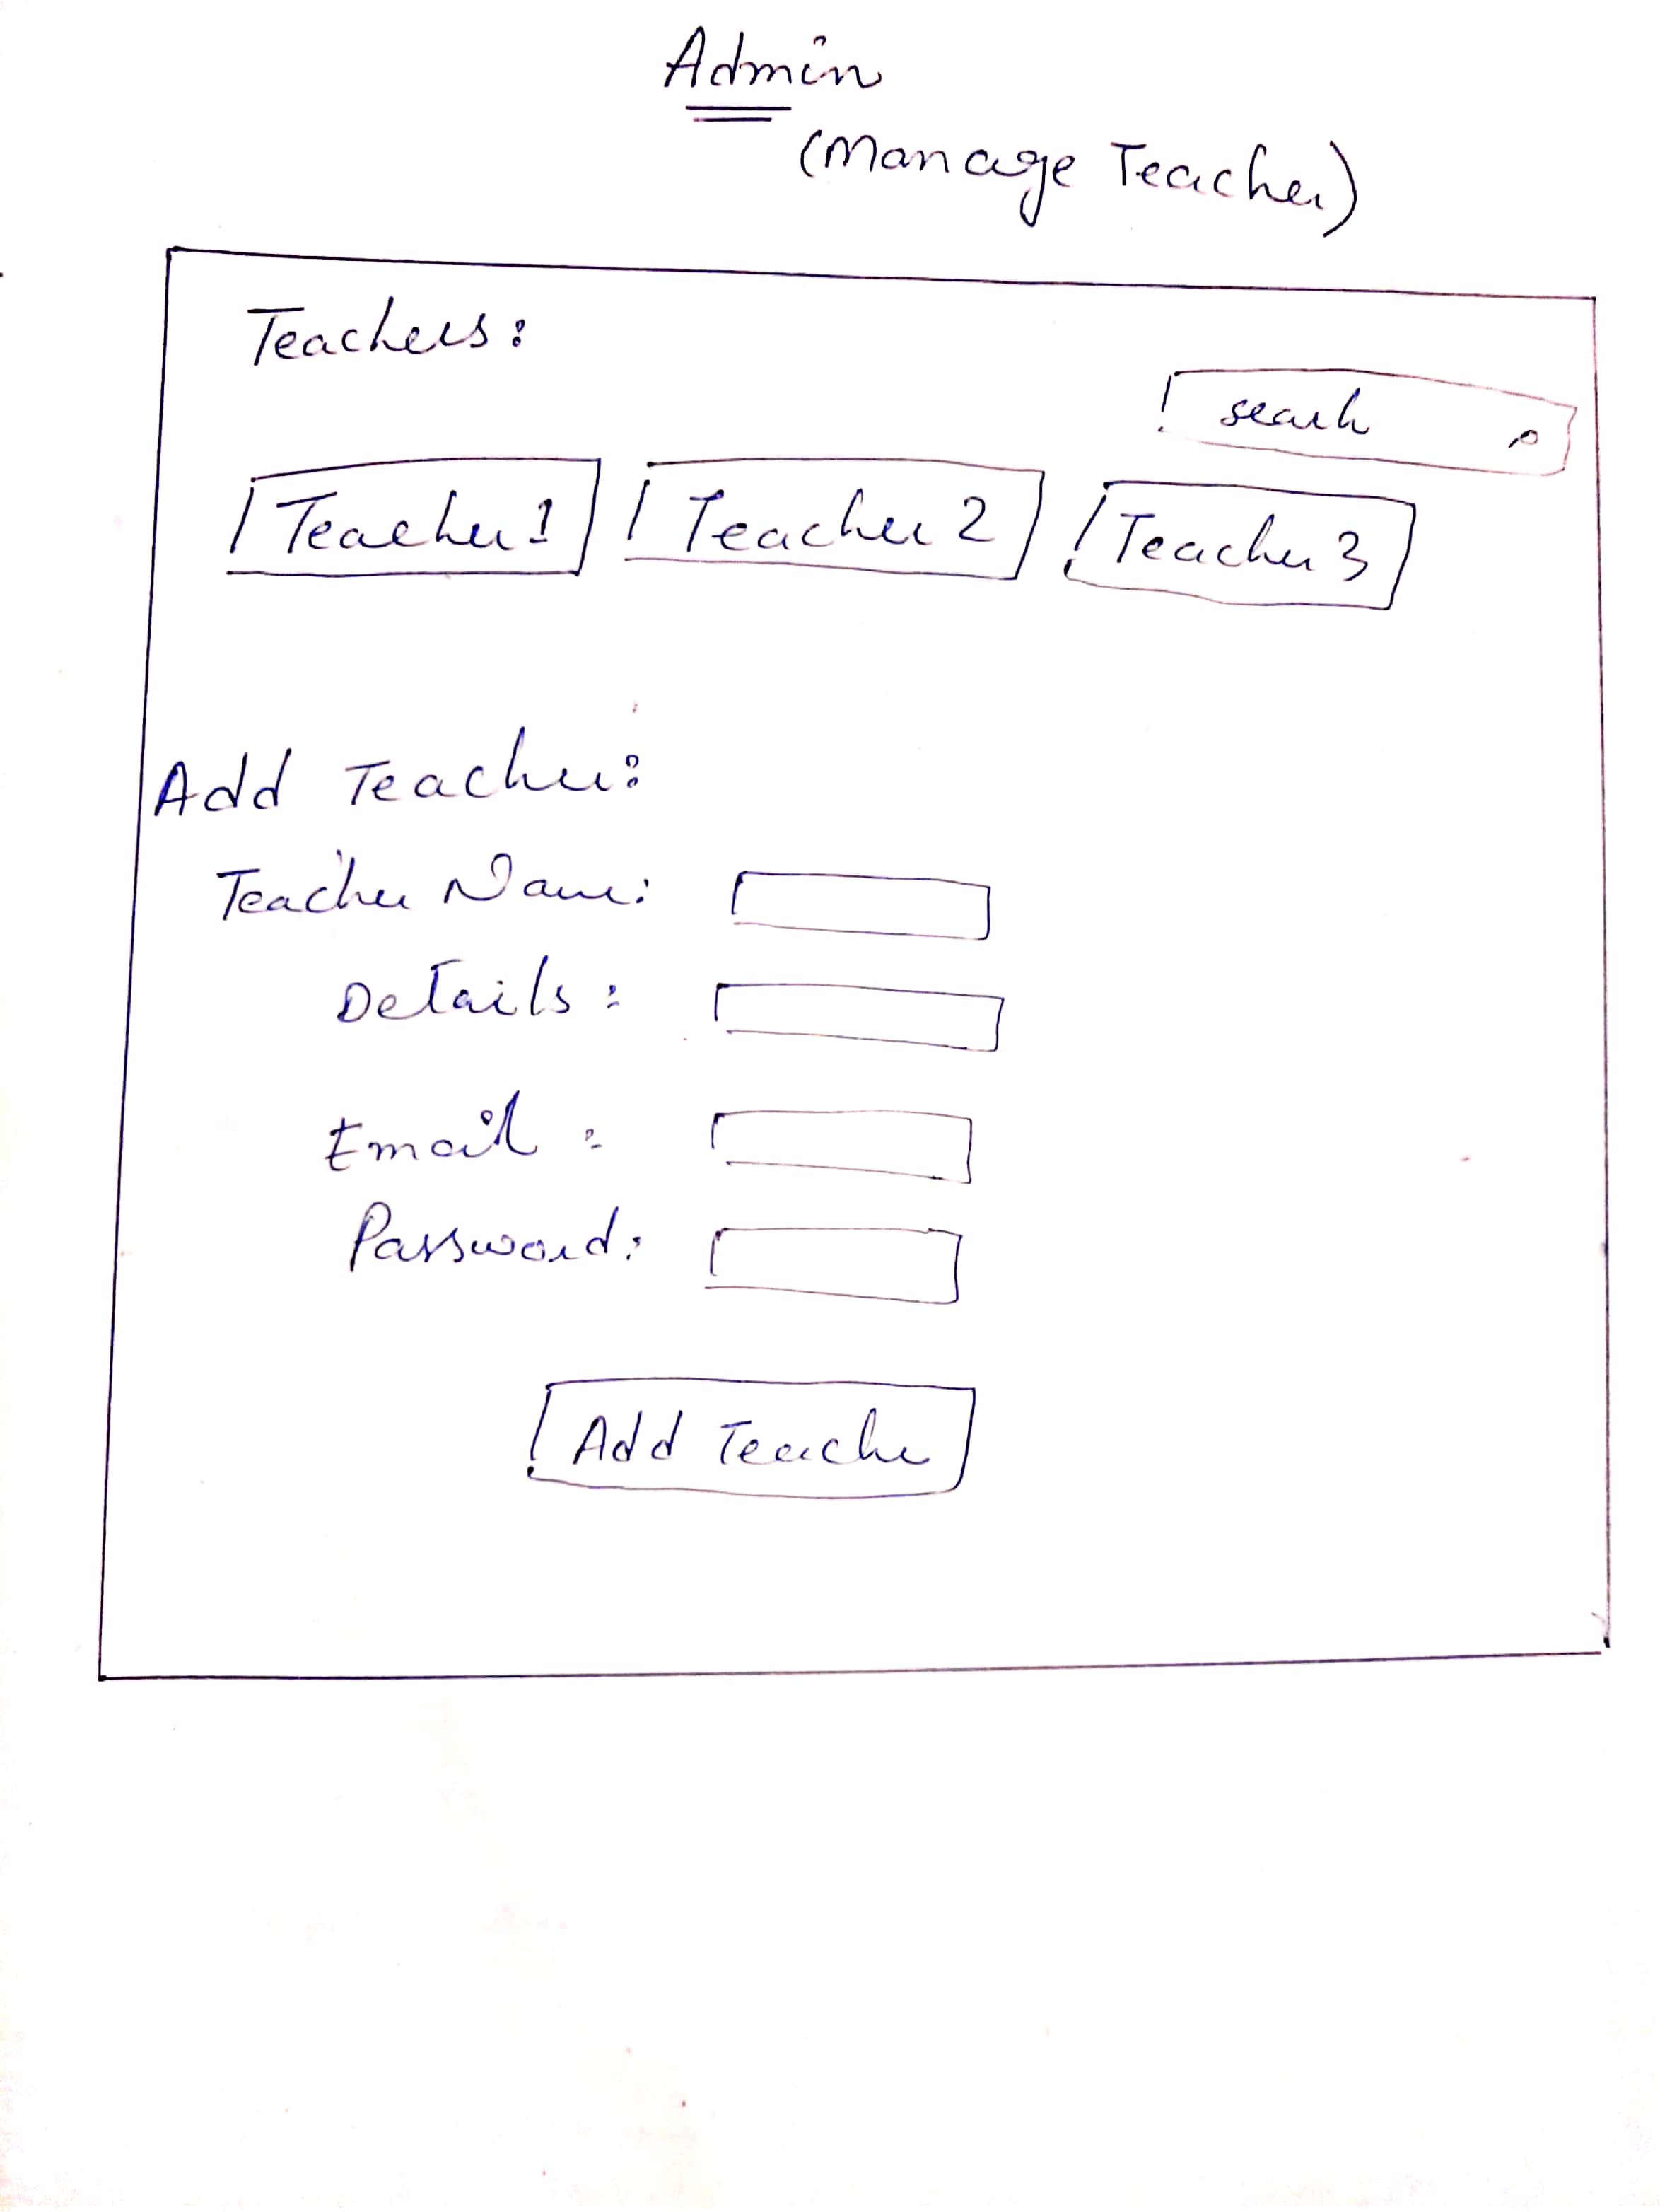 Admin
(Manage Teacher)
Teachers:
search
Teacher 1 Teacher 2 Teacher 3
Add Teacher:
Teacher Name:
Details:
Email:
Password:
Add Teacher